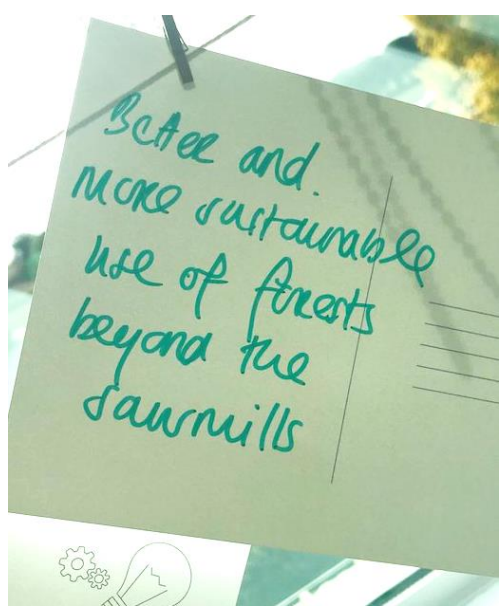 Better and.
more sustainable
use of forests
beyond the
sawmills